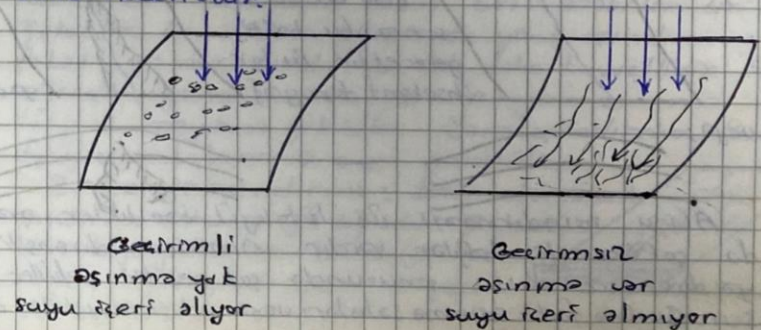 Geçirimli
aşınma yok
suyu içeri alıyor
Geçirmsiz
aşınma var
suyu içeri almıyor